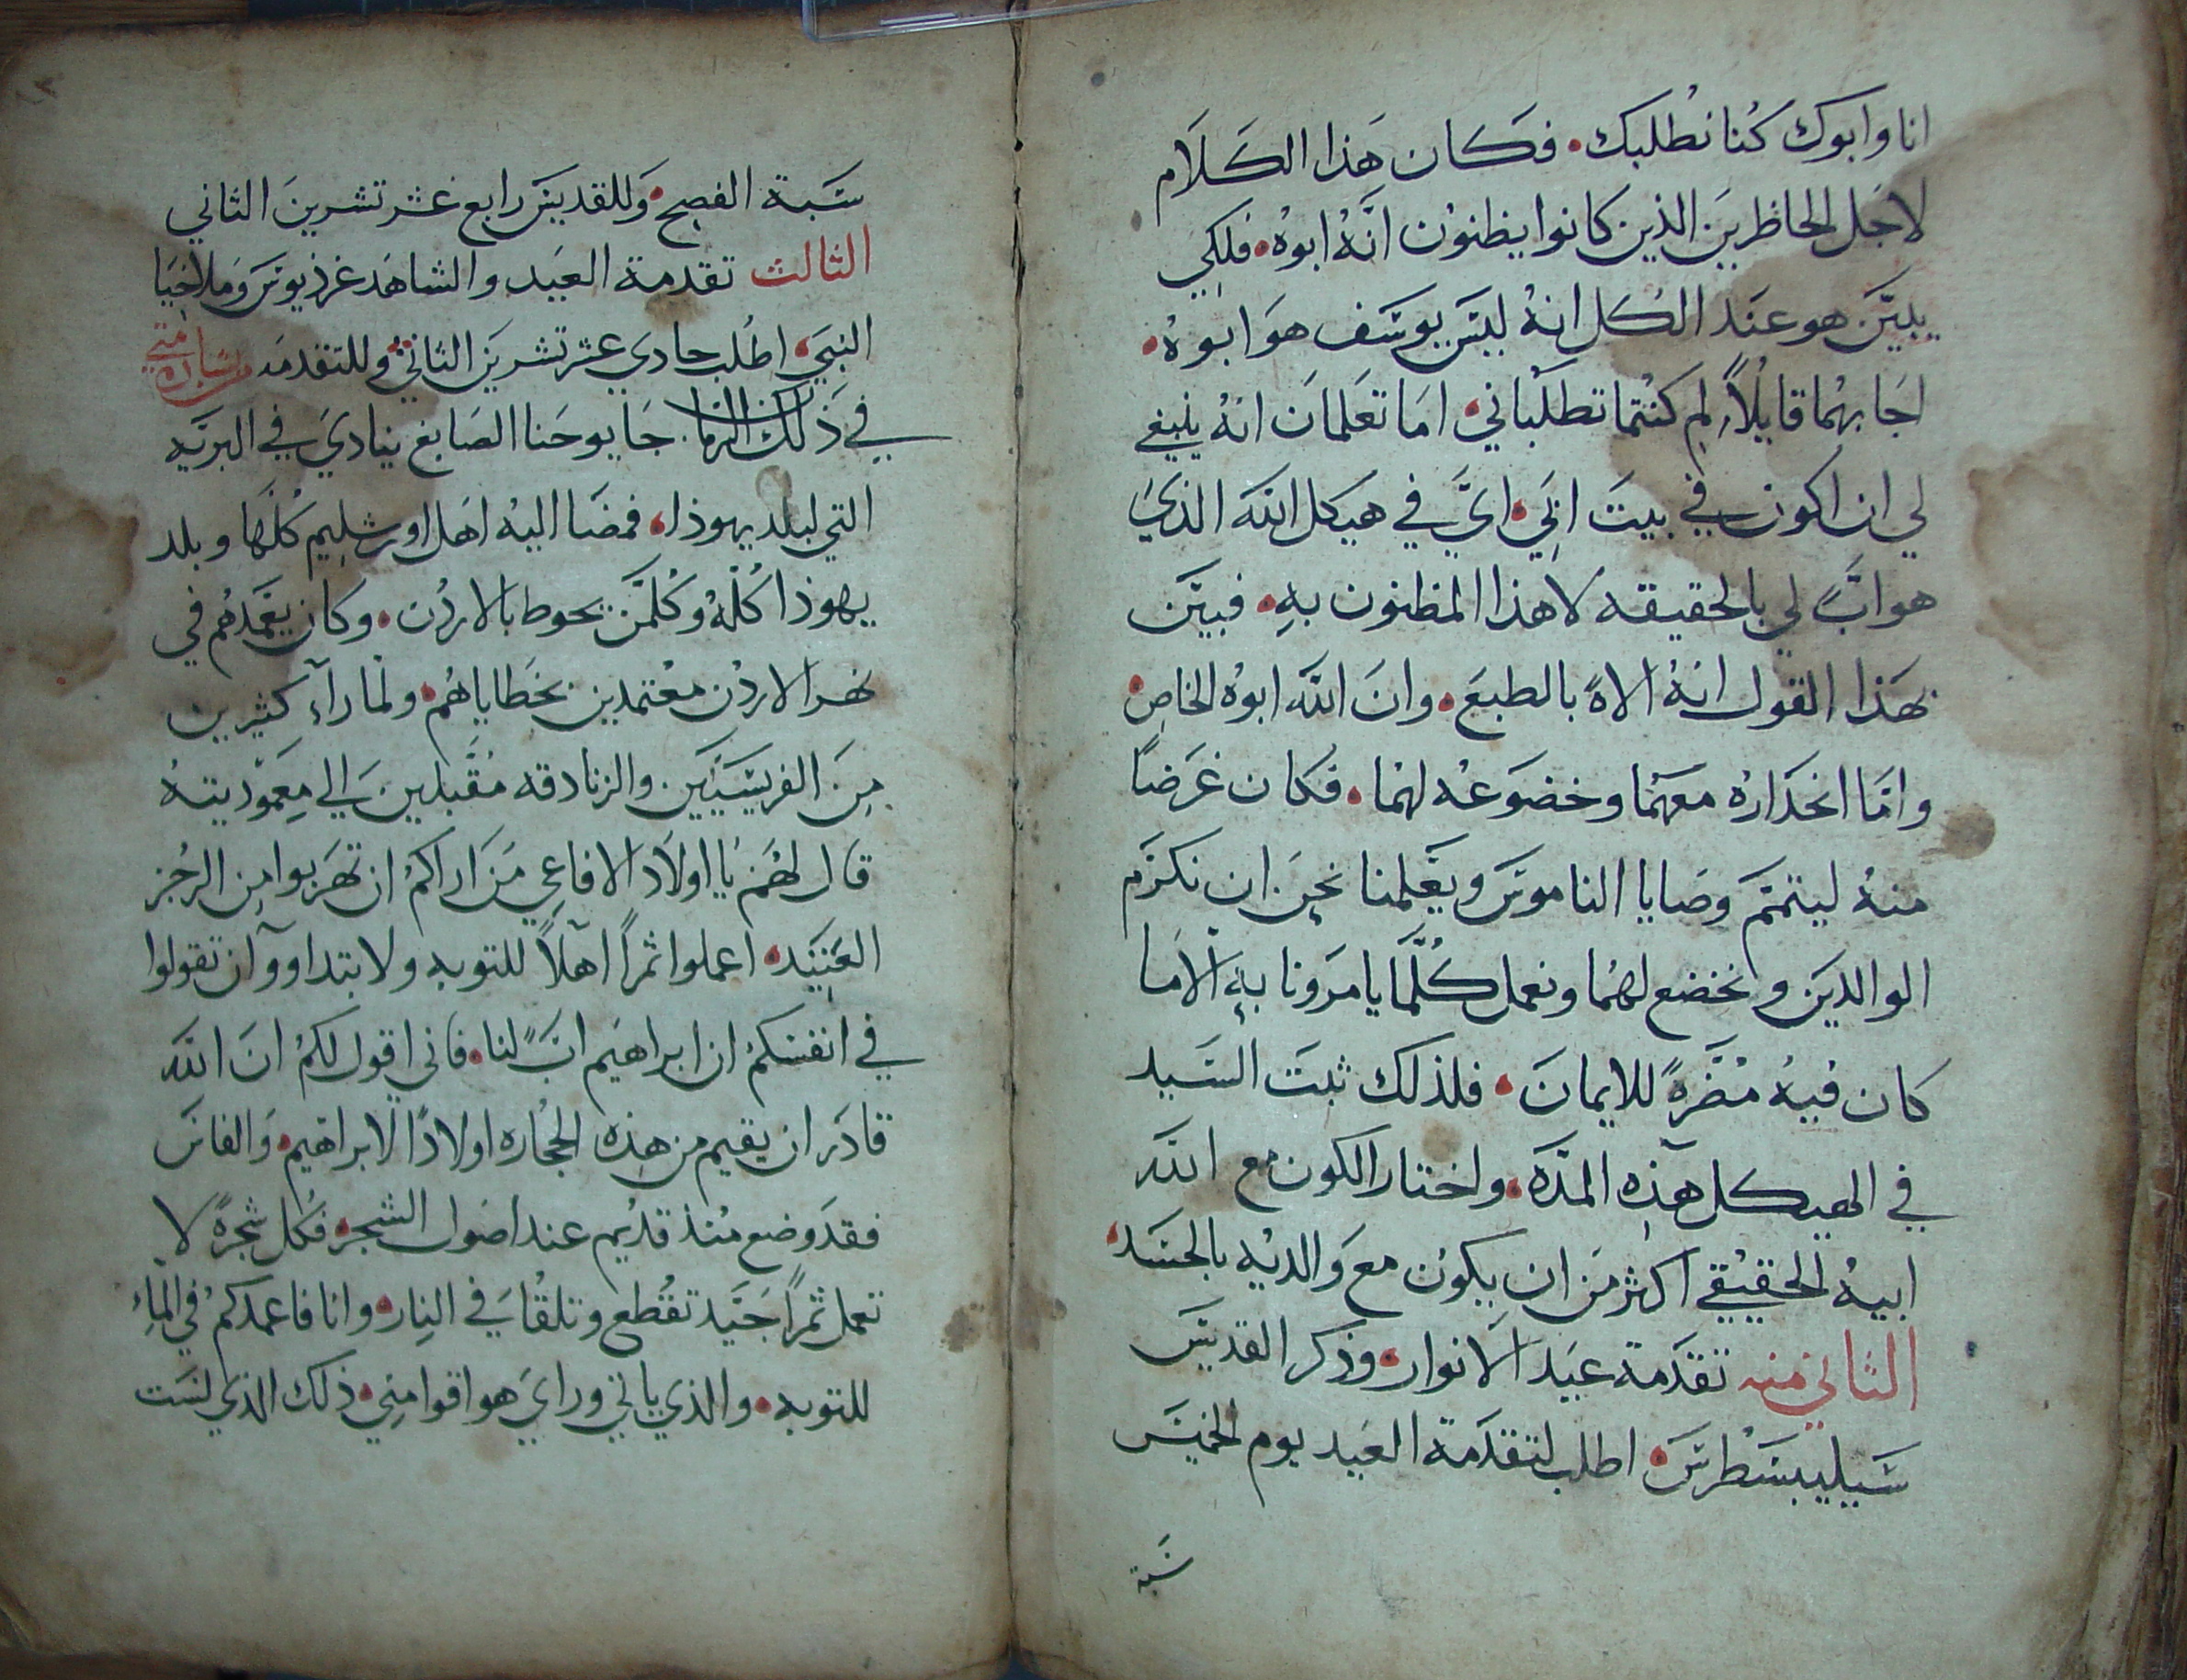 انا وابوك كُنا نطُلبك • فكان هَذا الكَلَام
لاجَل الحاظريَن الذين كانوا يظنوُن انَّهُ ابوهُ • فلكِي
يبيَّنَ هو عنَد الكُل انهُ ليسَ يوسَف هوَ ابوهُ •
اجَابهُما قايلُاً، لِمَ كنتُما تطلبُاني • امَا تعَلمان انهُ ينبغي
لي ان اكون في بيتَ ابَي • ايَّ في هيكل الله الذيَ
هو ابٌ لي بالحقيقه لا هذا المظنون بهِ • فبيَّن
بهَذا القول انهُ الاهً بالطبعَ • وانَ الله ابوهُ الخاصِ •
وامَا انحدَارهُ معهَما وخضوَعهُ لهمُا • فكان غرَضاً
منهُ ليتمَّمَ وصَايا الناموسَ ويعَّلمنا نحنِ ان نكرَم
الوالديَن ونخضع لهمُا ونعمل كُلّمَا يامرَونا بهِ الامَا
كان فيهُ مُضَّرهً للايمانَ • فلذلك ثبتَ السَيد
في الهيكل هذه المدَّه • واختار الكون مع الله
ابيهُ الحقيقي اكثر مَن ان يكوُن معَ والديهُ بالجسَد •
الثاني منه تقدَمة عيَد الانوار • وذكر القديسَ
سَيليبسَطْرسَ • اطلب لتقدَمة العَيد يوم الخميسَ
سَبة
سَبة الفصح • وَللقديسَ رابع عشر تشرينَ الثاني
الثالث تقدمة العَيد والشاهَد غرذيوسَ وَملاخيَا
النبيَ • اطُلب حادي عشر تشرينَ الثاني • وللتقدمَه بشارة متي
في ذَلك الزمان جَا يوحَنا الصَابغ ينُاديَ في البريَّه
التي لبلد يهوذا • فمضَا اليهُ اهَل اورشليم كُلهَا وبلد
يهوذا كُلّهُ وكُلمَّن يحوط بالاردُن • وكان يعَمَدهُم في
نهر الاردُن معُتمدين بخَطاياهُم • ولمَا رآء كثيرين
مِنَ الفريسَيّيَن والزنادقه مُقَبلين الي مِعَموديتهُ
قال لهمُ يا اولَاد الافاعي مَن اراكمُ ان تهَربوا من الرجُز
العَتيَد • اعملوا ثمراً اهلاً للتوبه ولا بتداووآ ان تقولوا
في انفسَكمُ ان ابراهيَم ابَ لنا • فاني اقول لكمُ انَ الله
قادَر ان يقيم من هذه الحجُاره اولادًا لابراهيم • وَالفاسَ
فقدَ وضع مُنذ قديُم عند اصَول الشجره فكُل شجرةً لا
تعمل ثمراً جَيَّد تقُطع وتلقُا في النار • وانا فاعمدكمُ في المآء
للتوبه • والذي ياتي ورايَ هو اقوا مني • ذلك الذي لسَت